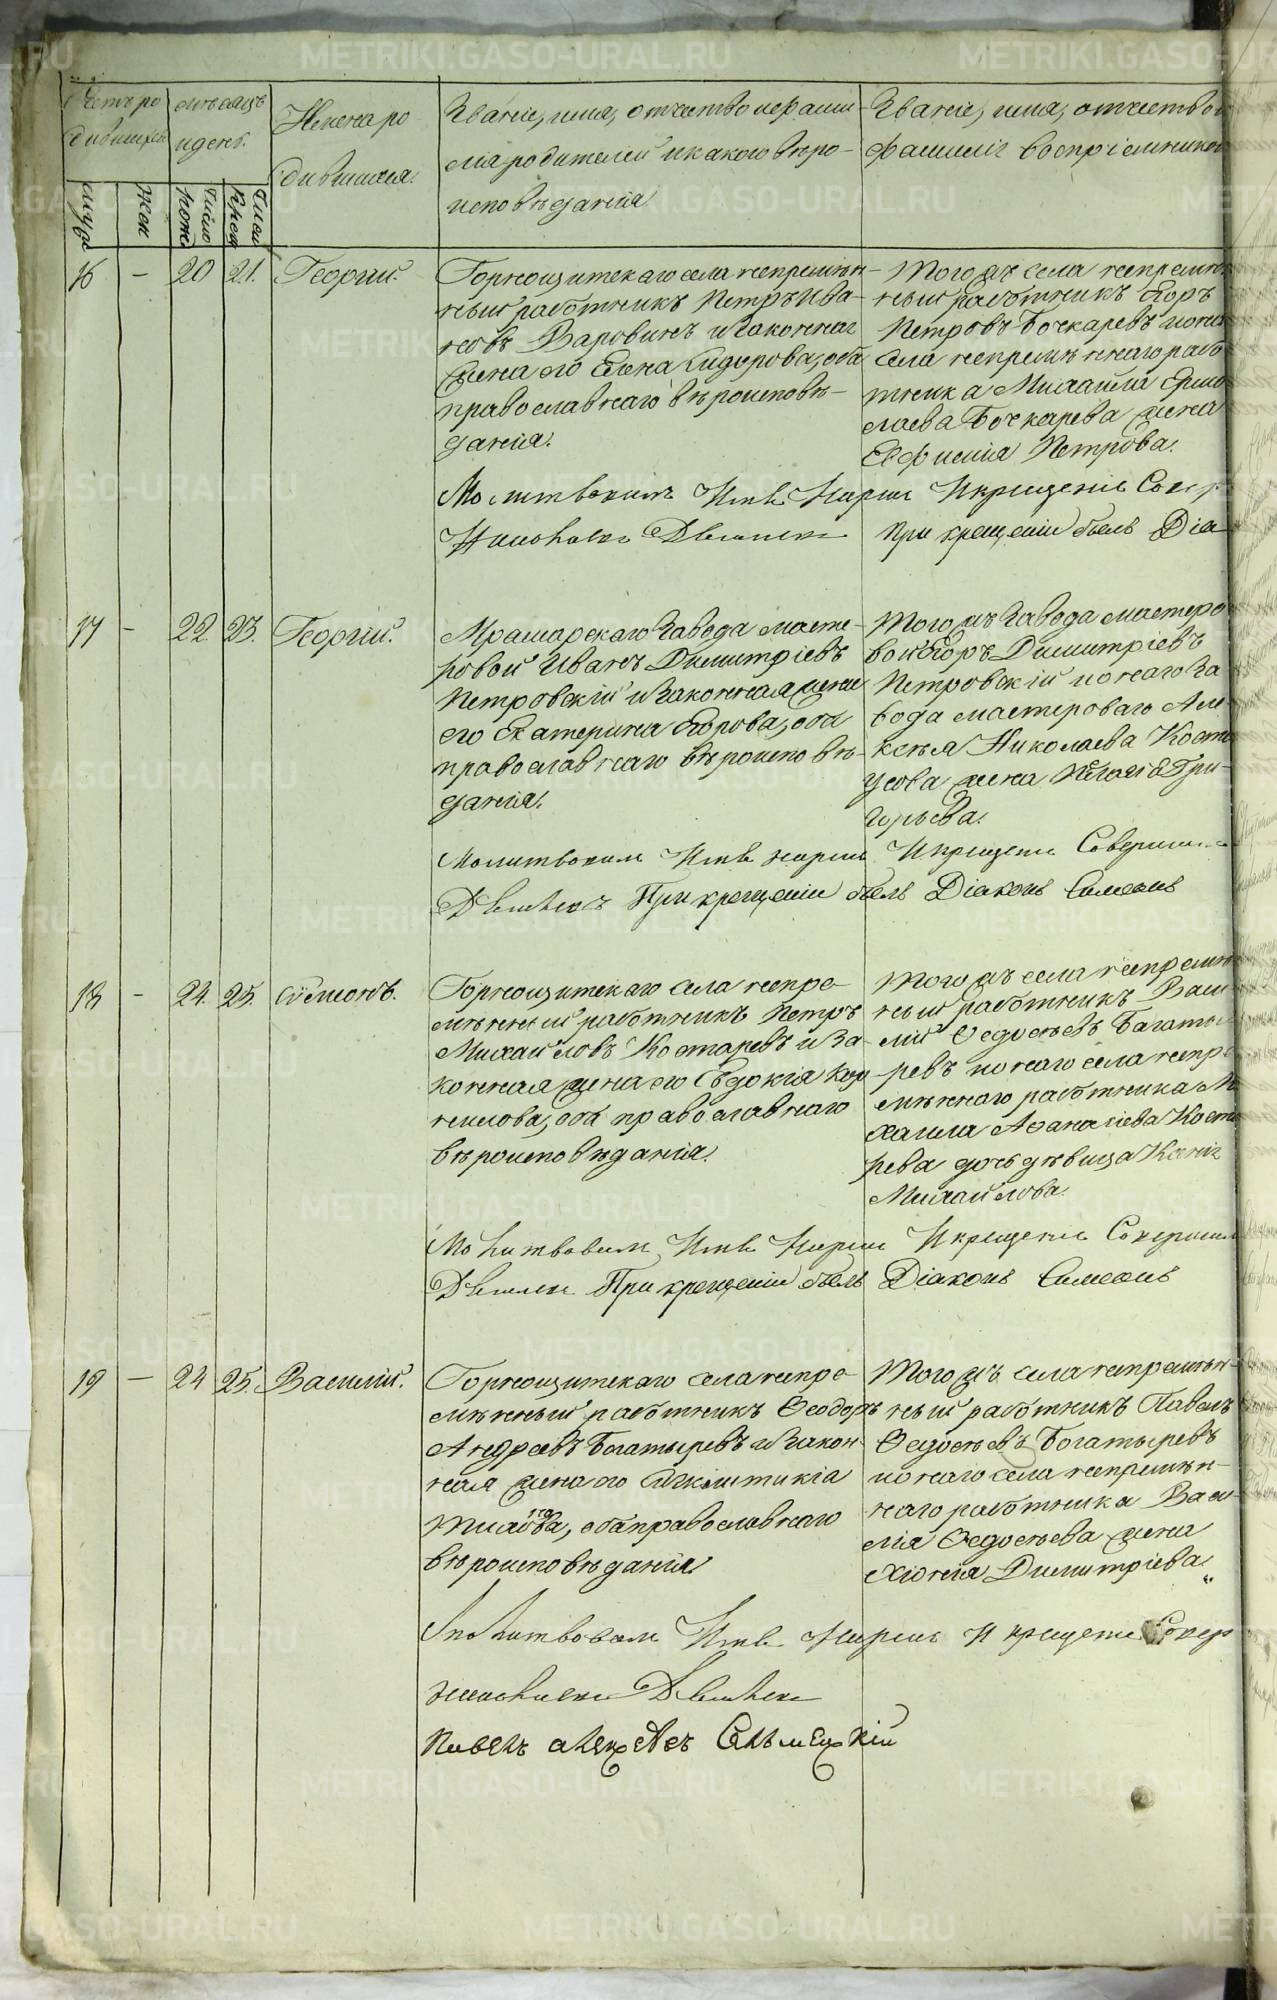 Счетъ ро
дившихся
мѣсяцъ
и день.
Имена ро
дившихся.
Званіе, имя, отчество и фами
лія родителей и какого вѣро-
исповѣданія
Званіе, имя, отчество и
фамилія воспріемников
муж
жен
Число
рожд
Число
крещ
16 — 20 21. Георгій.
Горнощитскаго села непремѣн-
ный работникъ Петръ Ива-
новъ Варовинъ и законная
жена его Елена Сидорова, оба
православнаго вѣроисповѣ-
данія.
Того жъ села непремѣн
ный работникъ Егоръ
Петровъ Бочкаревъ и онаго
села непремѣннаго рабо
тника Михаила Ермо
лаева Бочкарева жена
Евфимія Петрова.
Молитвовалъ Имя Нарекъ И крещеніе Совер
При крещеніи былъ Діа
17 — 22 23. Георгій.
Мраморскаго Завода масте-
ровой Иванъ Димитріевъ
Петровскій и законная жена
его Екатерина Егорова, оба
православнаго вѣроисповѣ-
данія.
Того жъ Завода мастеро
вой Егоръ Димитріевъ
Петровскій и онаго За
вода мастероваго Але
ксѣя Николаева Кост
усова жена Пелагія Гри-
горьева.
Молитвовалъ Имя нарекъ И крещеніе Соверши
При крещеніи былъ Діаконъ Симеонъ
18 — 24 25. Сѵмеонъ.
Горнощитскаго села непре-
мѣнный работникъ Петръ
Михайловъ Костаревъ и За
конная жена его Евдокія Кор
нилова, оба православнаго
вѣроисповѣданія.
Того жъ села непремѣн
ный работникъ Васи
лій Ѳедосѣевъ Багаты
ревъ и онаго села непре
мѣннаго работника Ми
хаила Аѳанасіева Коста
рева дочь дѣвица Ксенія
Михайлова.
Молитвовалъ Имя Нарекъ И крещеніе Совершилъ
При крещеніи былъ Діаконъ Симеонъ
19 — 24 25. Василій.
Горнощитскаго села непре-
мѣнный работникъ Ѳеодоръ
Андреевъ Богатыревъ и закон-
ная жена его Сѵнклитикіа
Тихонова, оба православнаго
вѣроисповѣданія
Того жъ села непремѣн-
ный работникъ Павелъ
Ѳедосѣевъ Богатыревъ
и онаго села непремѣн-
наго работника Васи-
лія Ѳедосѣева жена
Хіонія Димитріева.
Молитвовалъ Имя Нарекъ И крещеніе Совер
Павелъ Алексѣевъ
METRIKI.GASO-URAL.RU